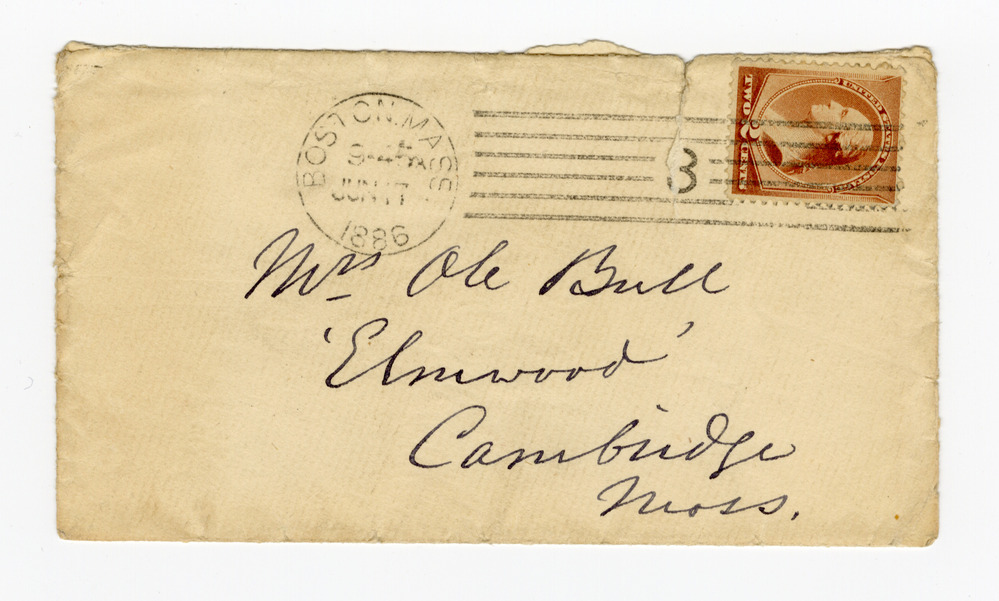 BOSTON. MASS.
JUN 17
1886
3
TWO 2 CENTS
UNITED STATES POSTAGE
Mrs Ole Bull
'Elmwood'
Cambridge
Mass.